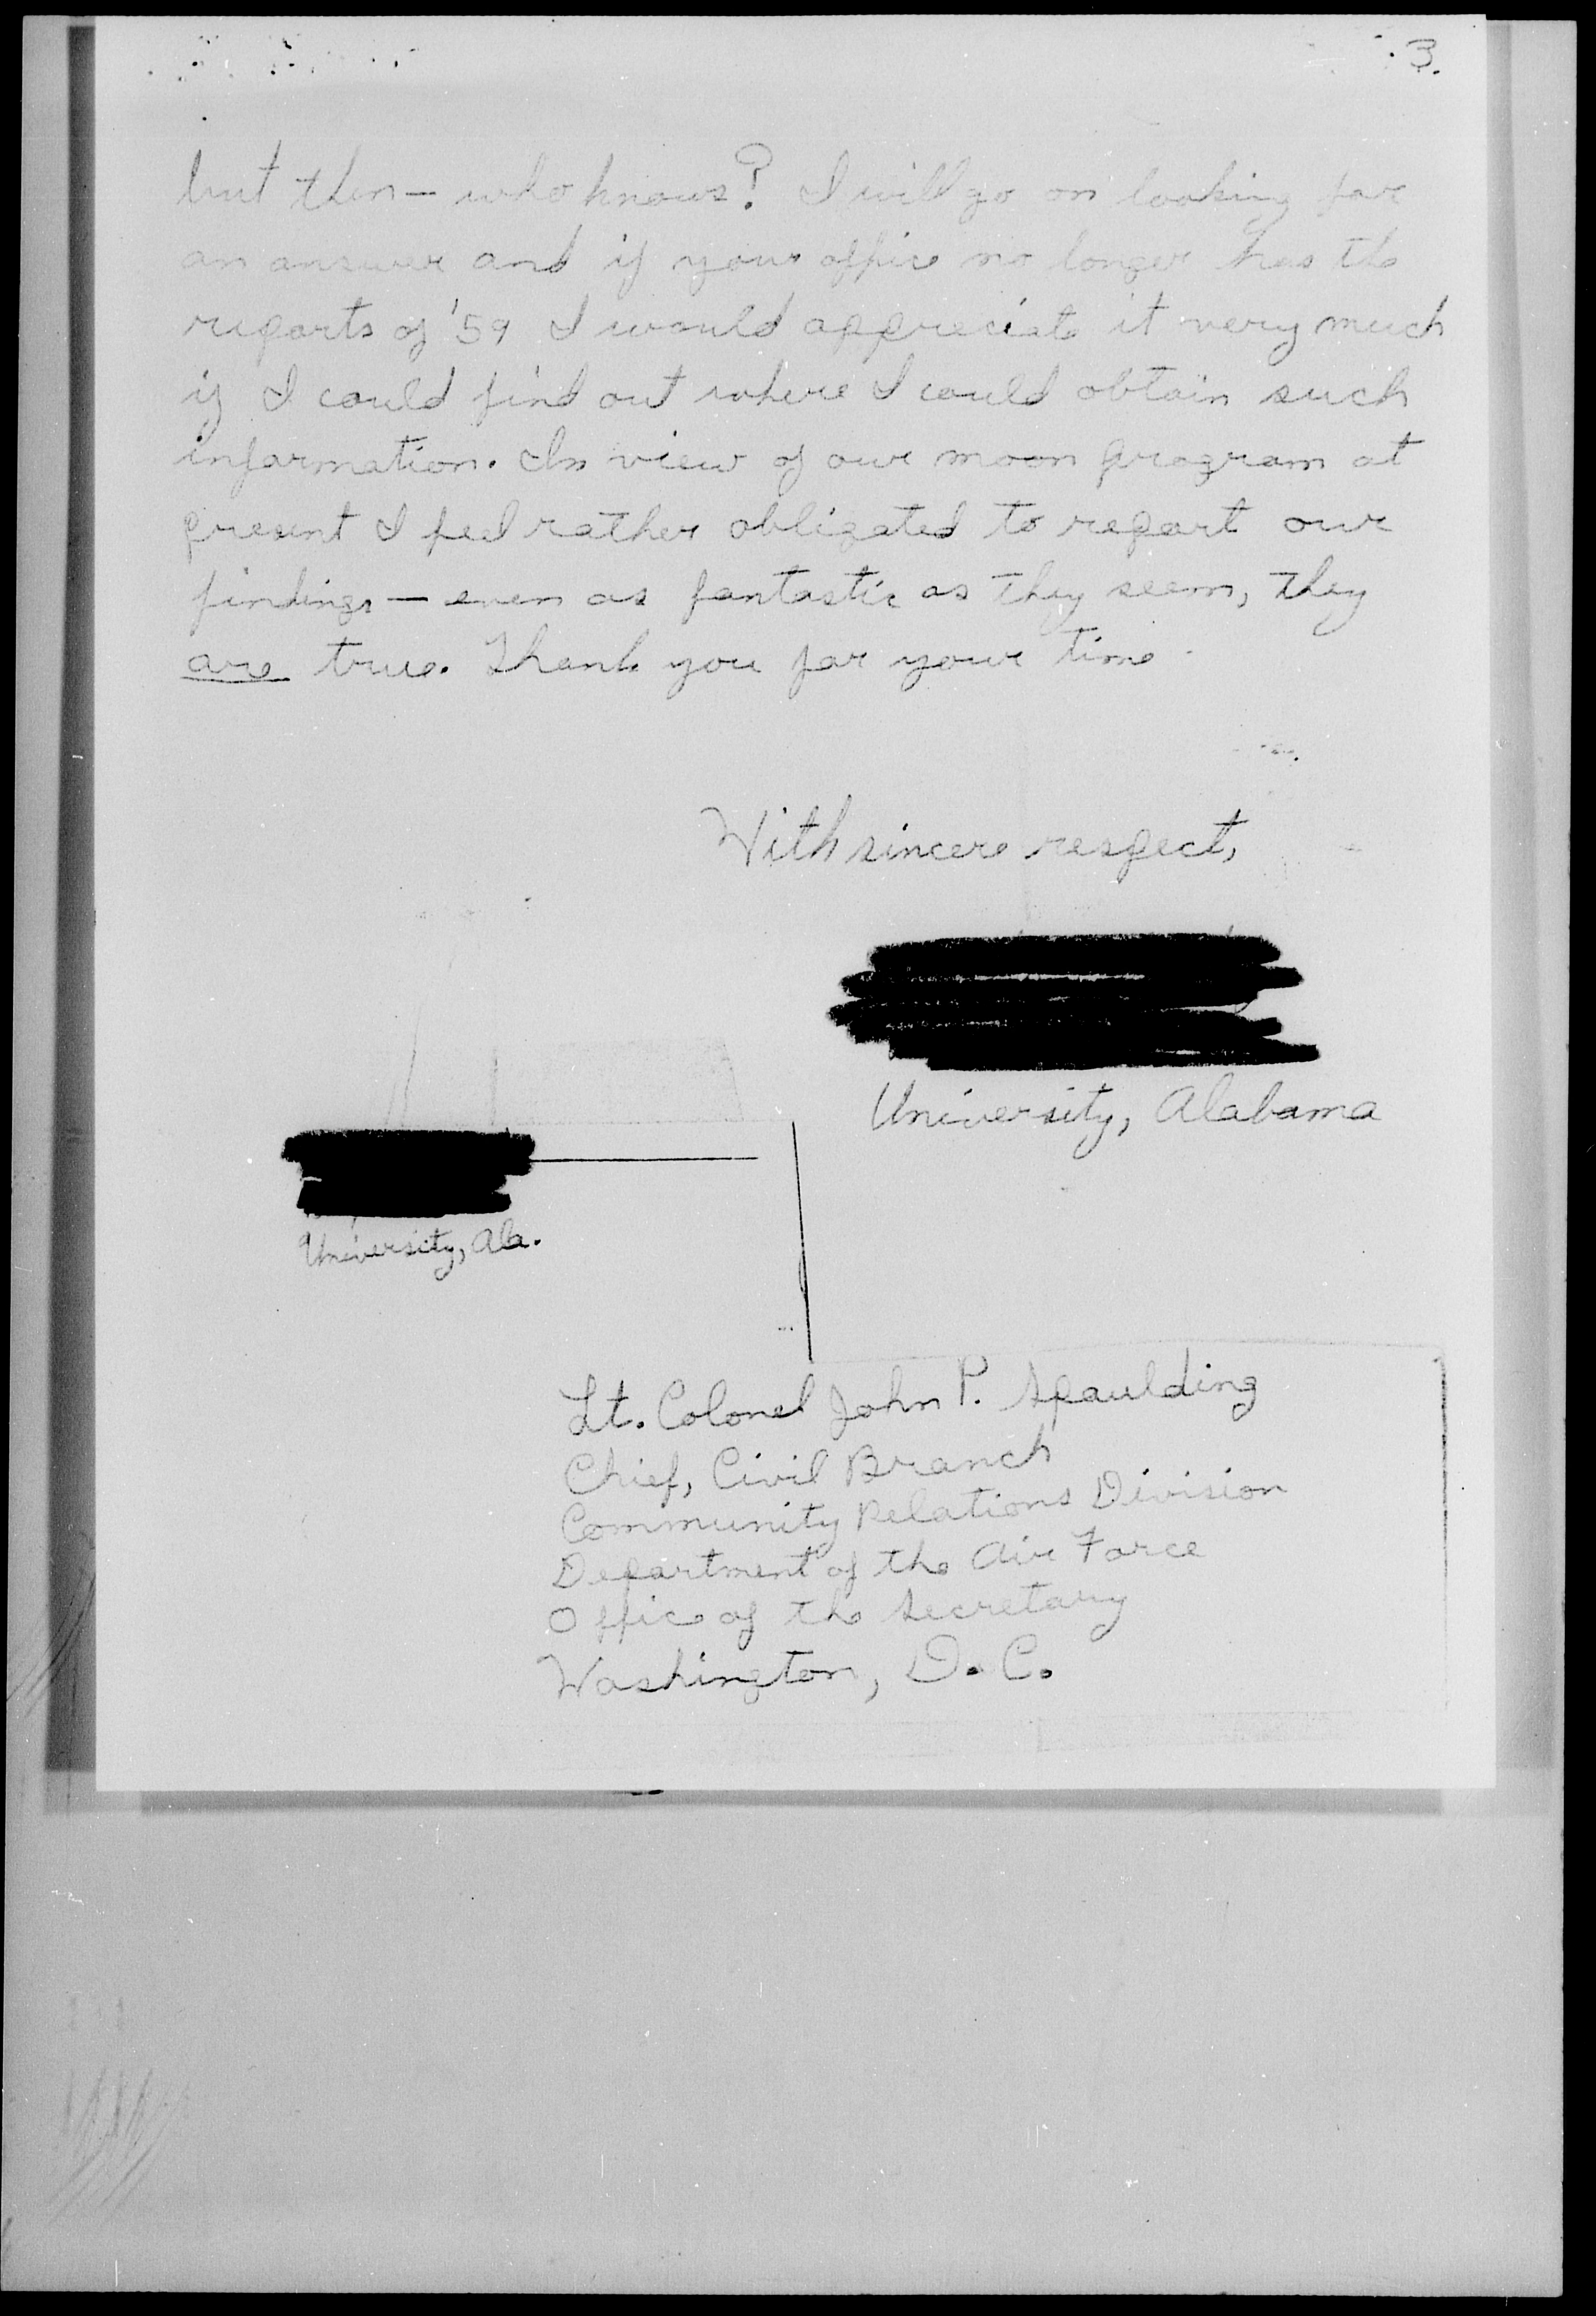 3.
but then — who knows? I will go on looking for
an answer and if your office no longer has the
reports of '59 I would appreciate it very much
if I could find out where I could obtain such
information. In view of our moon program at
present I feel rather obligated to report our
findings — even as fantastic as they seem, they
are true. Thank you for your time.
With sincere respect,
University, Alabama
University, Ala.
Lt. Colonel John P. Spaulding
Chief, Civil Branch
Community Relations Division
Department of the Air Force
Office of the Secretary
Washington, D. C.